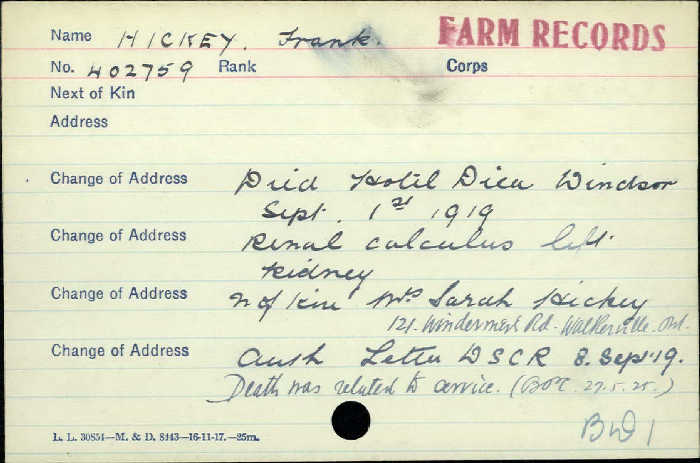 Name HICKEY, Frank. FARM RECORDS
No. 402759 Rank Corps
Next of Kin
Address
Change of Address Died Hotel Dieu Windsor
Sept. 1st 1919
Change of Address Renal calculus left
kidney
Change of Address N of Kin Mrs Sarah Hickey
121 Windermere Rd. Walkerville. Ont.
Change of Address Auth Letter DSCR 8. Sept 19.
Death was related to service. (BOC 27.5.25.)
L. L. 30854—M. & D. 8443—16-11-17.—25m.